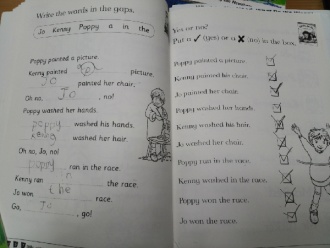 Write the words in the gaps.
Jo Kenny Poppy a in the
Poppy painted a picture.
Kenny painted a picture.
Jo painted her chair.
Oh no, Jo, no!
Poppy washed her hands.
poppy washed his hands.
washed her hair.
Oh no, Jo, no!
poppy ran in the race.
Kenny ran the race.
Jo won the the race.
Go, Jo, go!
Yes or no?
Put a ✓ (yes) or a ✗ (no) in the box.
Poppy painted a picture.
Kenny painted his chair.
Jo painted her chair.
Poppy washed her hands.
Kenny washed his hair.
Jo washed her chair.
Poppy ran in the race.
Kenny washed in the race.
Poppy won the race.
Jo won the race.